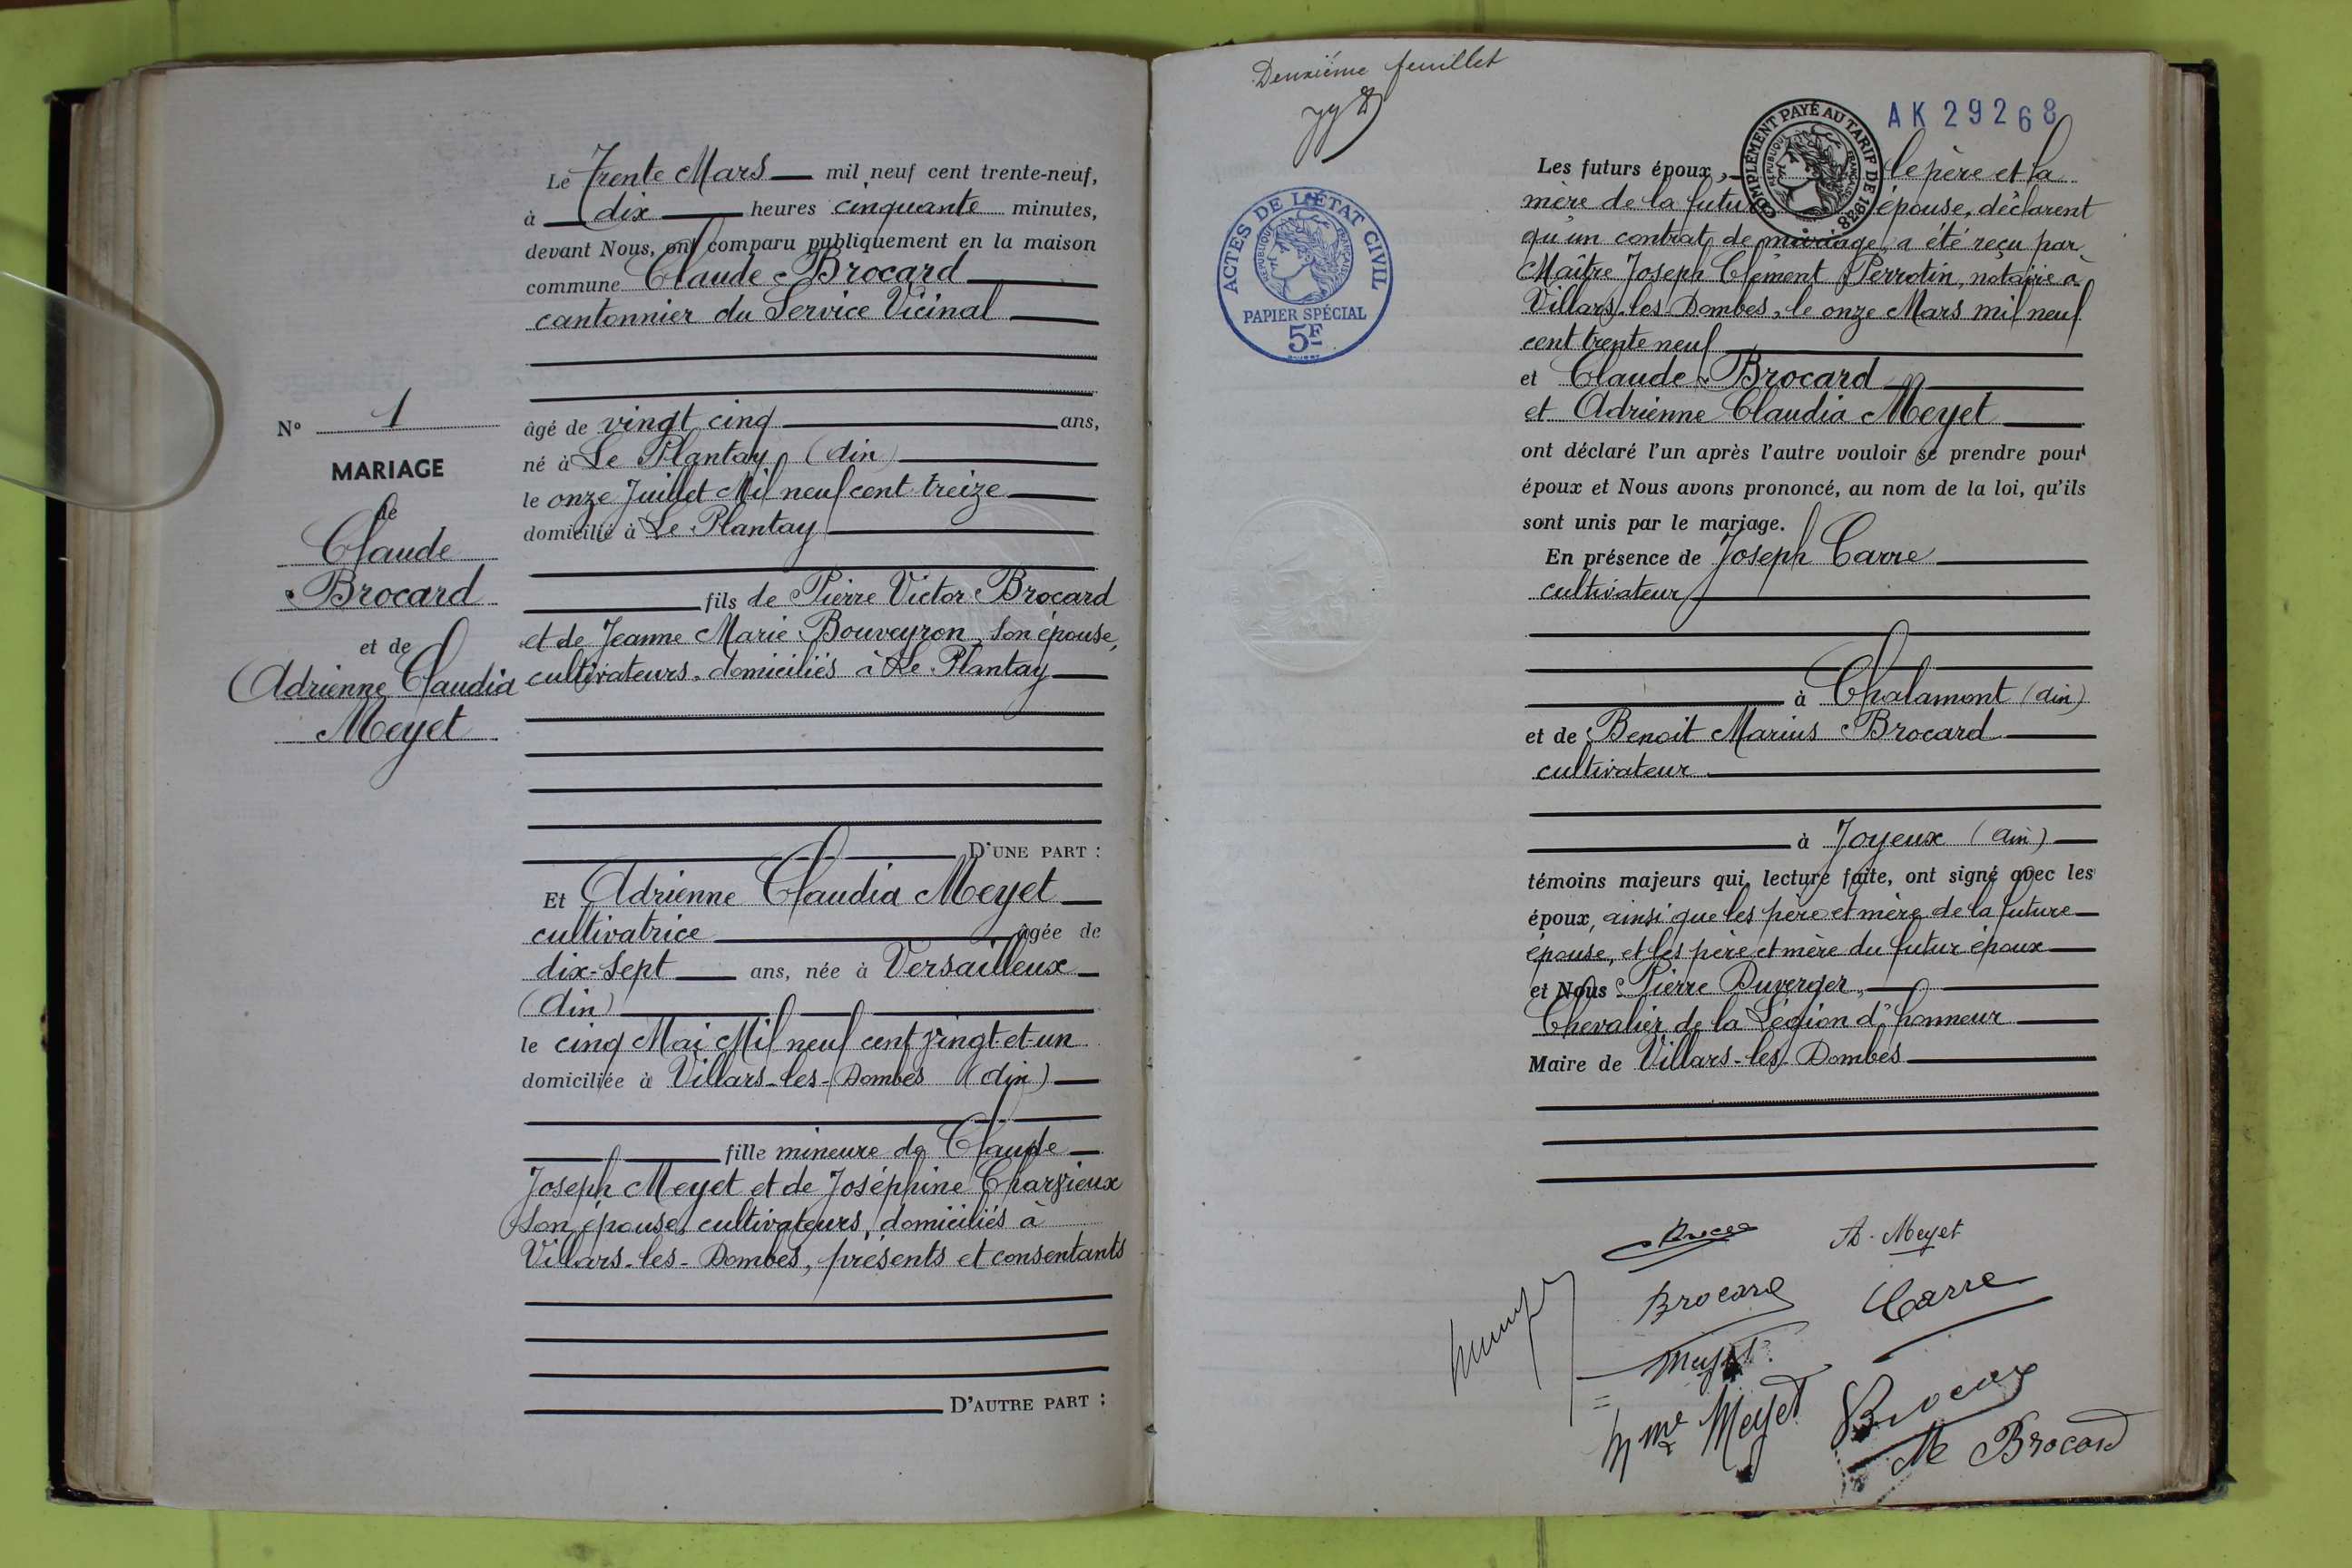 N° 1
MARIAGE
de
Claude
Brocard
et de
Adrienne Claudia
Meyet
Le Trente Mars mil neuf cent trente-neuf,
à dix heures cinquante minutes,
devant Nous, ont comparu publiquement en la maison
commune Claude Brocard
cantonnier du Service Vicinal
âgé de vingt cinq ans,
né à Le Plantay (Ain)
le onze Juillet Mil neuf cent treize
domicilié à Le Plantay
fils de Pierre Victor Brocard
et de Jeanne Marie Bouveyron, son épouse,
cultivateurs, domiciliés à Le Plantay
D'UNE PART :
Et Adrienne Claudia Meyet
cultivatrice âgée de
dix-sept ans, née à Versailleux
(Ain)
le cinq Mai Mil neuf cent vingt-et-un
domiciliée à Villars-les-Dombes (Ain)
fille mineure de Claude
Joseph Meyet et de Joséphine Charvieux
son épouse, cultivateurs, domiciliés à
Villars-les-Dombes, présents et consentants
D'AUTRE PART :
Deuxième feuillet
ACTES DE L'ÉTAT CIVIL
RÉPUBLIQUE FRANÇAISE
PAPIER SPÉCIAL
5F
AK 29268
COMPLÉMENT PAYÉ AU TARIF DE 1938
RÉPUBLIQUE FRANÇAISE
Les futurs époux, le père et la
mère de la future épouse, déclarent
qu'un contrat de mariage, a été reçu par
Maître Joseph Clément Perrotin, notaire à
Villars-les-Dombes, le onze Mars mil neuf
cent trente neuf
et Claude Brocard
et Adrienne Claudia Meyet
ont déclaré l'un après l'autre vouloir se prendre pour
époux et Nous avons prononcé, au nom de la loi, qu'ils
sont unis par le mariage.
En présence de Joseph Carre
cultivateur
à Chalamont (Ain)
et de Benoit Marius Brocard
cultivateur
à Joyeux (Ain)
témoins majeurs qui, lecture faite, ont signé avec les
époux, ainsi que les père et mère de la future
épouse, et les père et mère du futur époux
et Nous Pierre Duverger,
Chevalier de la Légion d'honneur
Maire de Villars-les-Dombes
A. Meyet
Brocard
Carre
Meyet
Mme Meyet
Brocard
Me Brocard